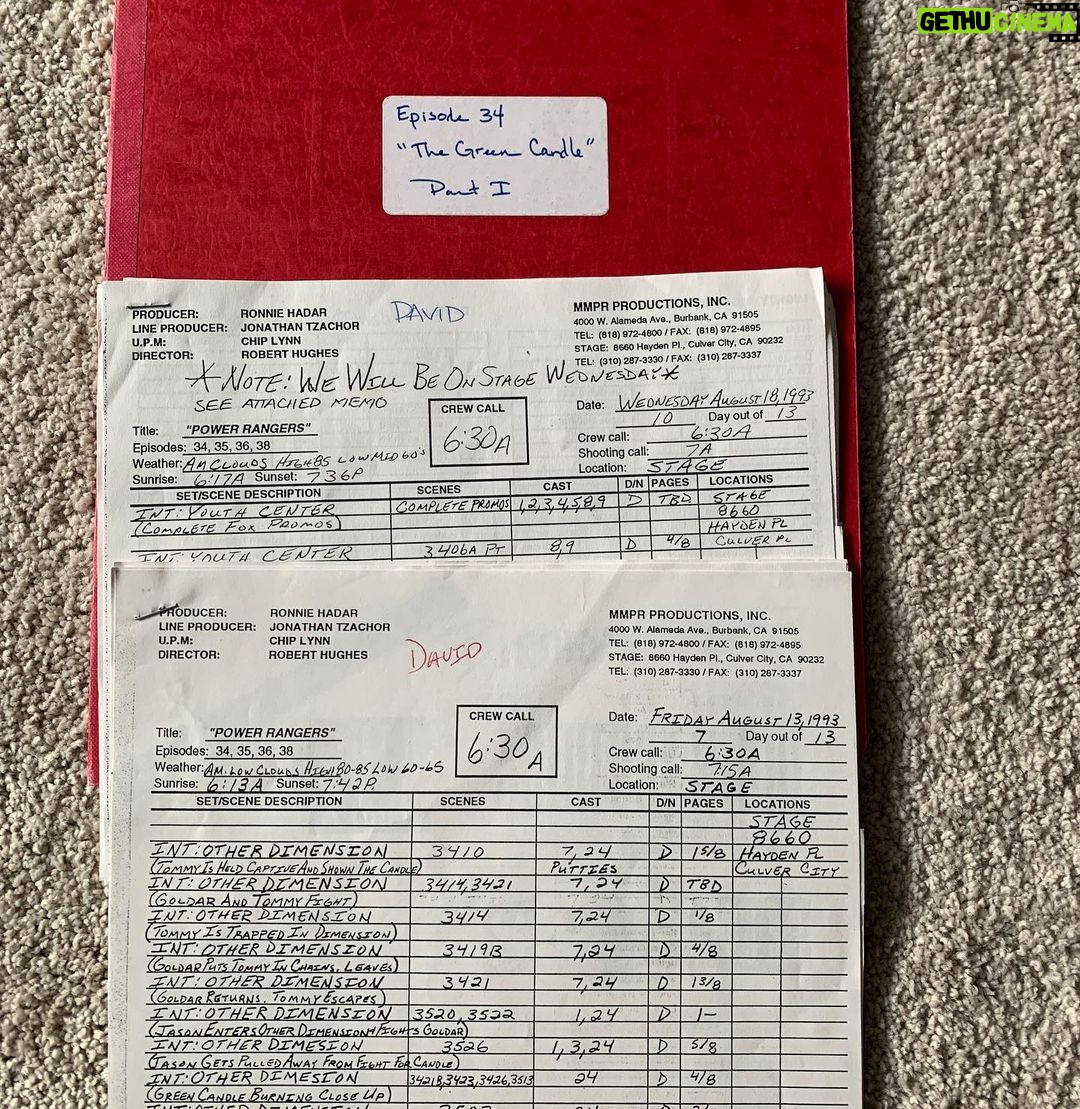 GETHU CINEMA
Episode 34
"The Green Candle"
Part I
PRODUCER: RONNIE HADAR
LINE PRODUCER: JONATHAN TZACHOR
U.P.M: CHIP LYNN
DIRECTOR: ROBERT HUGHES
DAVID
MMPR PRODUCTIONS, INC.
4000 W. Alameda Ave., Burbank, CA 91505
TEL: (818) 972-4800 / FAX: (818) 972-4895
STAGE: 8660 Hayden Pl., Culver City, CA 90232
TEL: (310) 287-3330 / FAX: (310) 287-3337
*NOTE: WE WILL BE ON STAGE WEDNESDAY*
SEE ATTACHED MEMO
Title: "POWER RANGERS"
Episodes: 34, 35, 36, 38
Weather: AM CLOUDS HIGH 85 LOW MID 60's
Sunrise: 6:17A Sunset: 7:36P
CREW CALL
6:30A
Date: WEDNESDAY AUGUST 18, 1993
10 Day out of 13
Crew call: 6:30A
Shooting call: 7A
Location: STAGE
SET/SCENE DESCRIPTION SCENES CAST D/N PAGES LOCATIONS
INT: YOUTH CENTER COMPLETE PROMOS 1,2,3,4,5,8,9 D TBD STAGE
8660
(COMPLETE FOX PROMOS) HAYDEN PL
INT: YOUTH CENTER 3406A PT 8,9 D 4/8 CULVER
PRODUCER: RONNIE HADAR
LINE PRODUCER: JONATHAN TZACHOR
U.P.M: CHIP LYNN
DIRECTOR: ROBERT HUGHES
DAVID
MMPR PRODUCTIONS, INC.
4000 W. Alameda Ave., Burbank, CA 91505
TEL: (818) 972-4800 / FAX: (818) 972-4895
STAGE: 8660 Hayden Pl., Culver City, CA 90232
TEL: (310) 287-3330 / FAX: (310) 287-3337
Title: "POWER RANGERS"
Episodes: 34, 35, 36, 38
Weather: AM. LOW CLOUDS HIGH 80-85 LOW 60-65
Sunrise: 6:13A Sunset: 7:42P
CREW CALL
6:30A
Date: FRIDAY AUGUST 13, 1993
7 Day out of 13
Crew call: 6:30A
Shooting call: 7:15A
Location: STAGE
SET/SCENE DESCRIPTION SCENES CAST D/N PAGES LOCATIONS
STAGE
8660
INT: OTHER DIMENSION 3410 7,24 D 1 5/8 HAYDEN PL
(TOMMY IS HELD CAPTIVE AND SHOWN THE CANDLE) PUTTIES CULVER CITY
INT: OTHER DIMENSION 3414,3421 7,24 D TBD
(GOLDAR AND TOMMY FIGHT)
INT: OTHER DIMENSION 3414 7,24 D 1/8
(TOMMY IS TRAPPED IN DIMENSION)
INT: OTHER DIMENSION 3419B 7,24 D 4/8
(GOLDAR PUTS TOMMY IN CHAINS, LEAVES)
INT: OTHER DIMENSION 3421 7,24 D 1 3/8
(GOLDAR RETURNS, TOMMY ESCAPES)
INT: OTHER DIMENSION 3520, 3522 1,24 D 1-
(JASON ENTERS OTHER DIMENSION + FIGHTS GOLDAR)
INT: OTHER DIMESION 3526 1,3,24 D 5/8
(JASON GETS PULLED AWAY FROM FIGHT FOR CANDLE)
INT: OTHER DIMESION 3421B,3423,3426,3513 24 D 4/8
(GREEN CANDLE BURNING CLOSE UP)